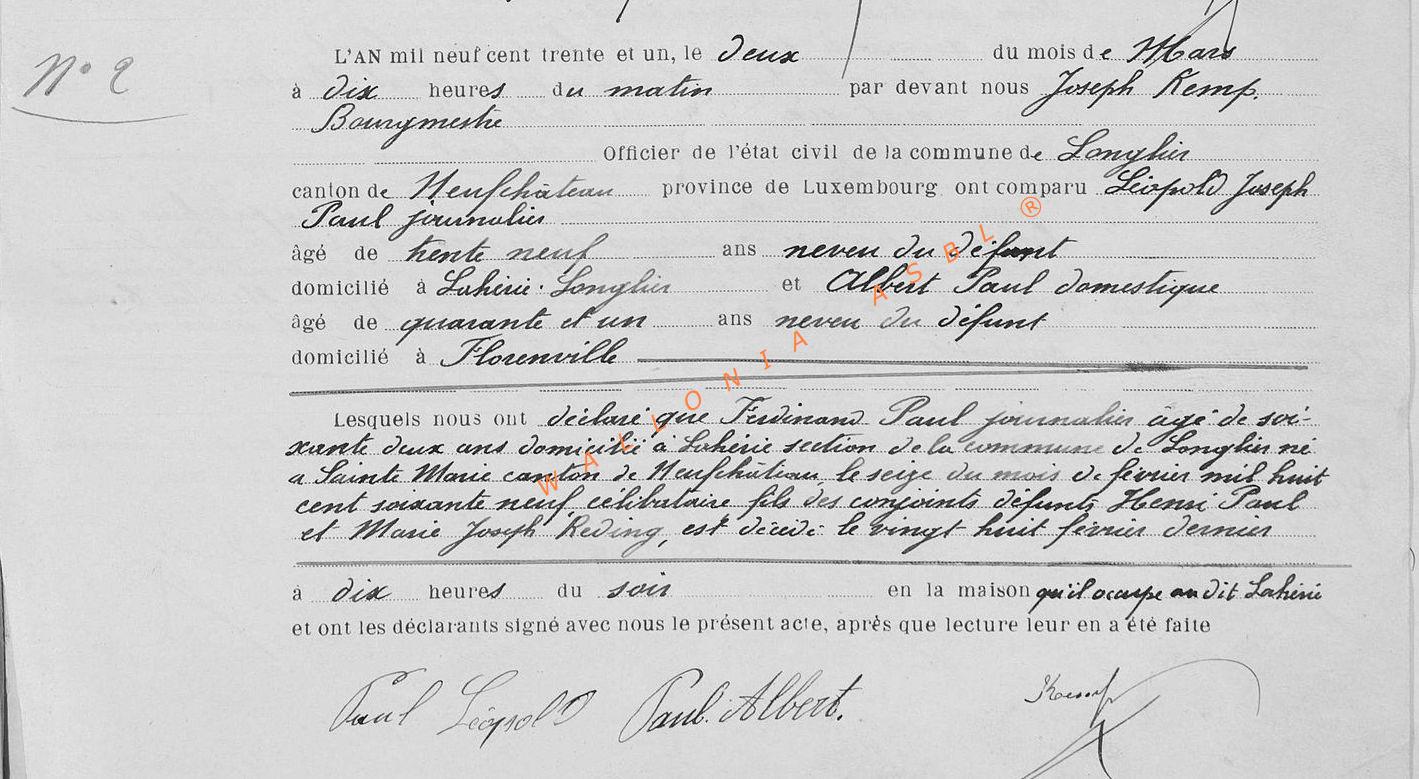 N° 2
L'AN mil neuf cent trente et un, le deux du mois de Mars
à dix heures du matin par devant nous Joseph Kemp,
Bourgmestre
Officier de l'état civil de la commune de Longlier
canton de Neufchâteau province de Luxembourg ont comparu Léopold Joseph
Paul journalier
âgé de trente neuf ans neveu du défunt
domicilié à Lahérie-Longlier et Albert Paul domestique
âgé de quarante et un ans neveu du défunt
domicilié à Florenville
Lesquels nous ont déclaré que Ferdinand Paul journalier âgé de soi-
xante deux ans domicilié à Lahérie section de la commune de Longlier né
a Sainte Marie canton de Neufchâteau, le seize du mois de février mil huit
cent soixante neuf, célibataire fils des conjoints défunts Henri Paul
et Marie Joseph Reding, est décédé le vingt huit février dernier
à dix heures du soir en la maison qu'il occupe au dit Lahérie
et ont les déclarants signé avec nous le présent acte, après que lecture leur en a été faite
Paul Léopold Paul. Albert. Kemp
WALLONIA ASBL ®